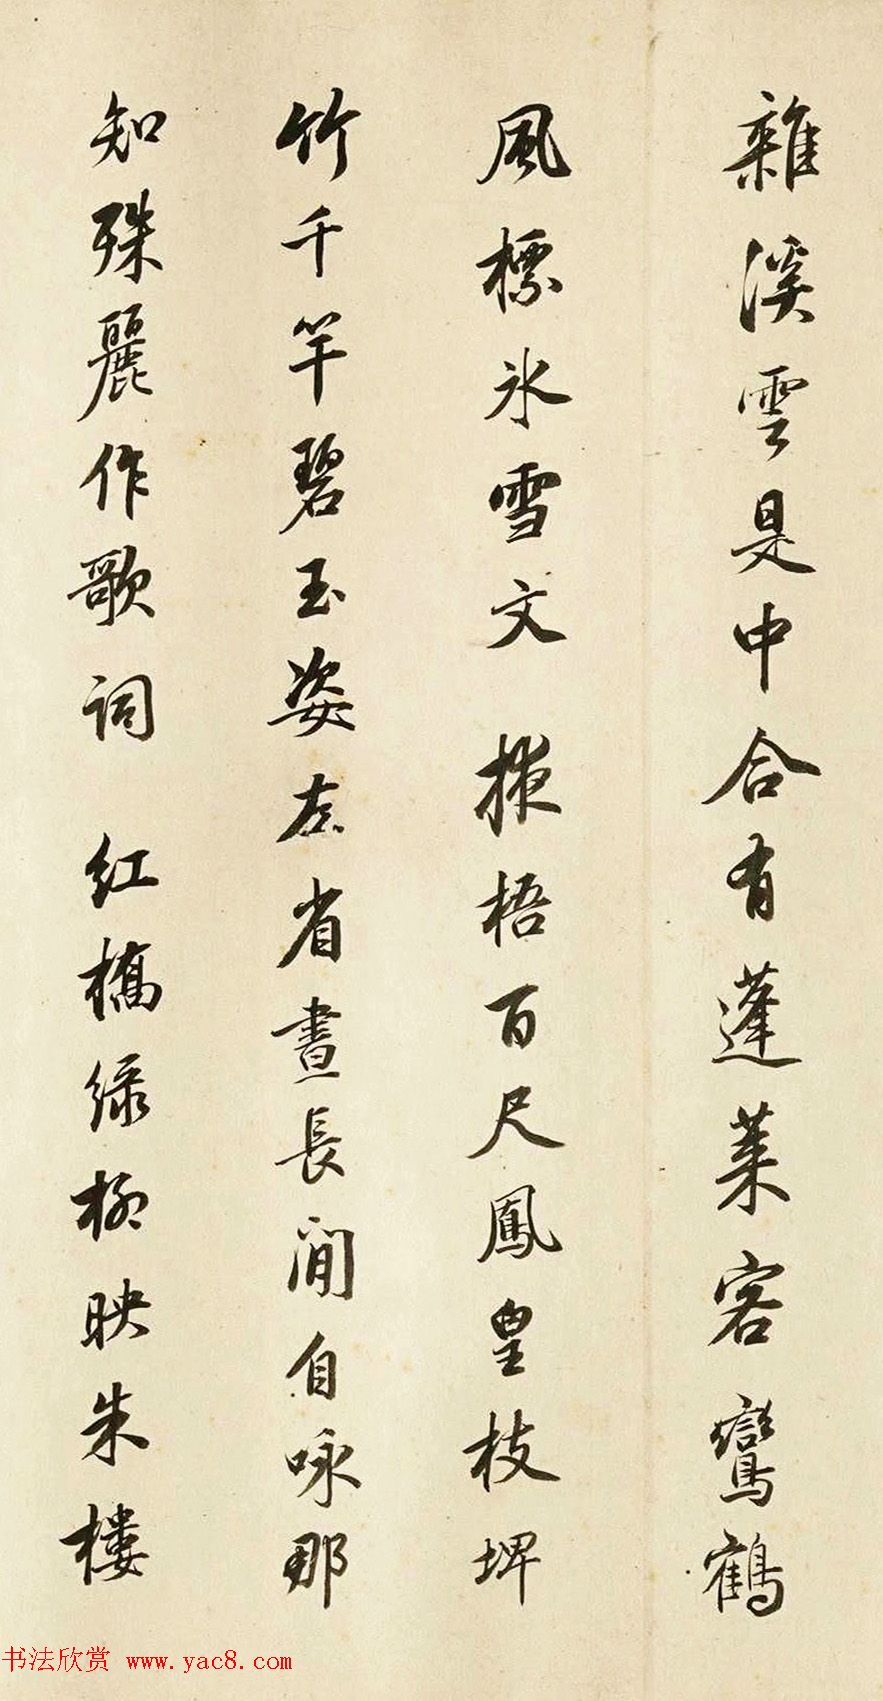 雜溪雲是中合有蓬萊客鸞鶴
風標氷雪文 掖梧百尺鳳皇枝埤
竹千竿碧玉姿左省晝長閒自咏那
知殊麗作歌詞 紅橋緑柳映朱樓
书法欣赏 www.yac8.com